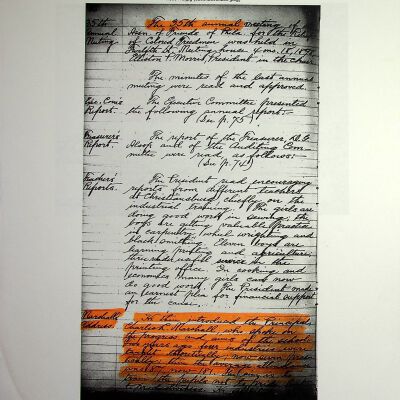 35th The 35th annual meeting of
Annual Assn. of Friends of Phila. for the Relief
Meeting of Colored Freedmen was held in
Twelfth St. Meeting house 4 mo. 18, 189
Elliston P. Morris, President in the chair.
The minutes of the last annual
meeting were read and approved.
Exe. Com's The Executive Committee presented
Report. the following annual report:-
(See p. 75)
Treasurer's The report of the Treasurer
Report. Alsop and of the Auditing Com-
mittee were read, as follows:-
(See p. 74)
Teachers' The President read encouraging
Reports. reports from different teachers
at Christiansburg chiefly on the
industrial training. The girls are
doing good work in sewing; the
boys are getting valuable practice
in carpentry, wheel wrighting and
blacksmithing. Eleven boys are
learning printing and agriculture;
three make useful service in the
printing office. In cooking and
economics many girls can now
do good work. The President made
an earnest plea for financial support
for the cause.
Marshall He then introduced to Principal
Address. Charles L. Marshall, who spoke on
the progress and aims of the school.
four industries were
taught now seven
the average attendance
was now 181.